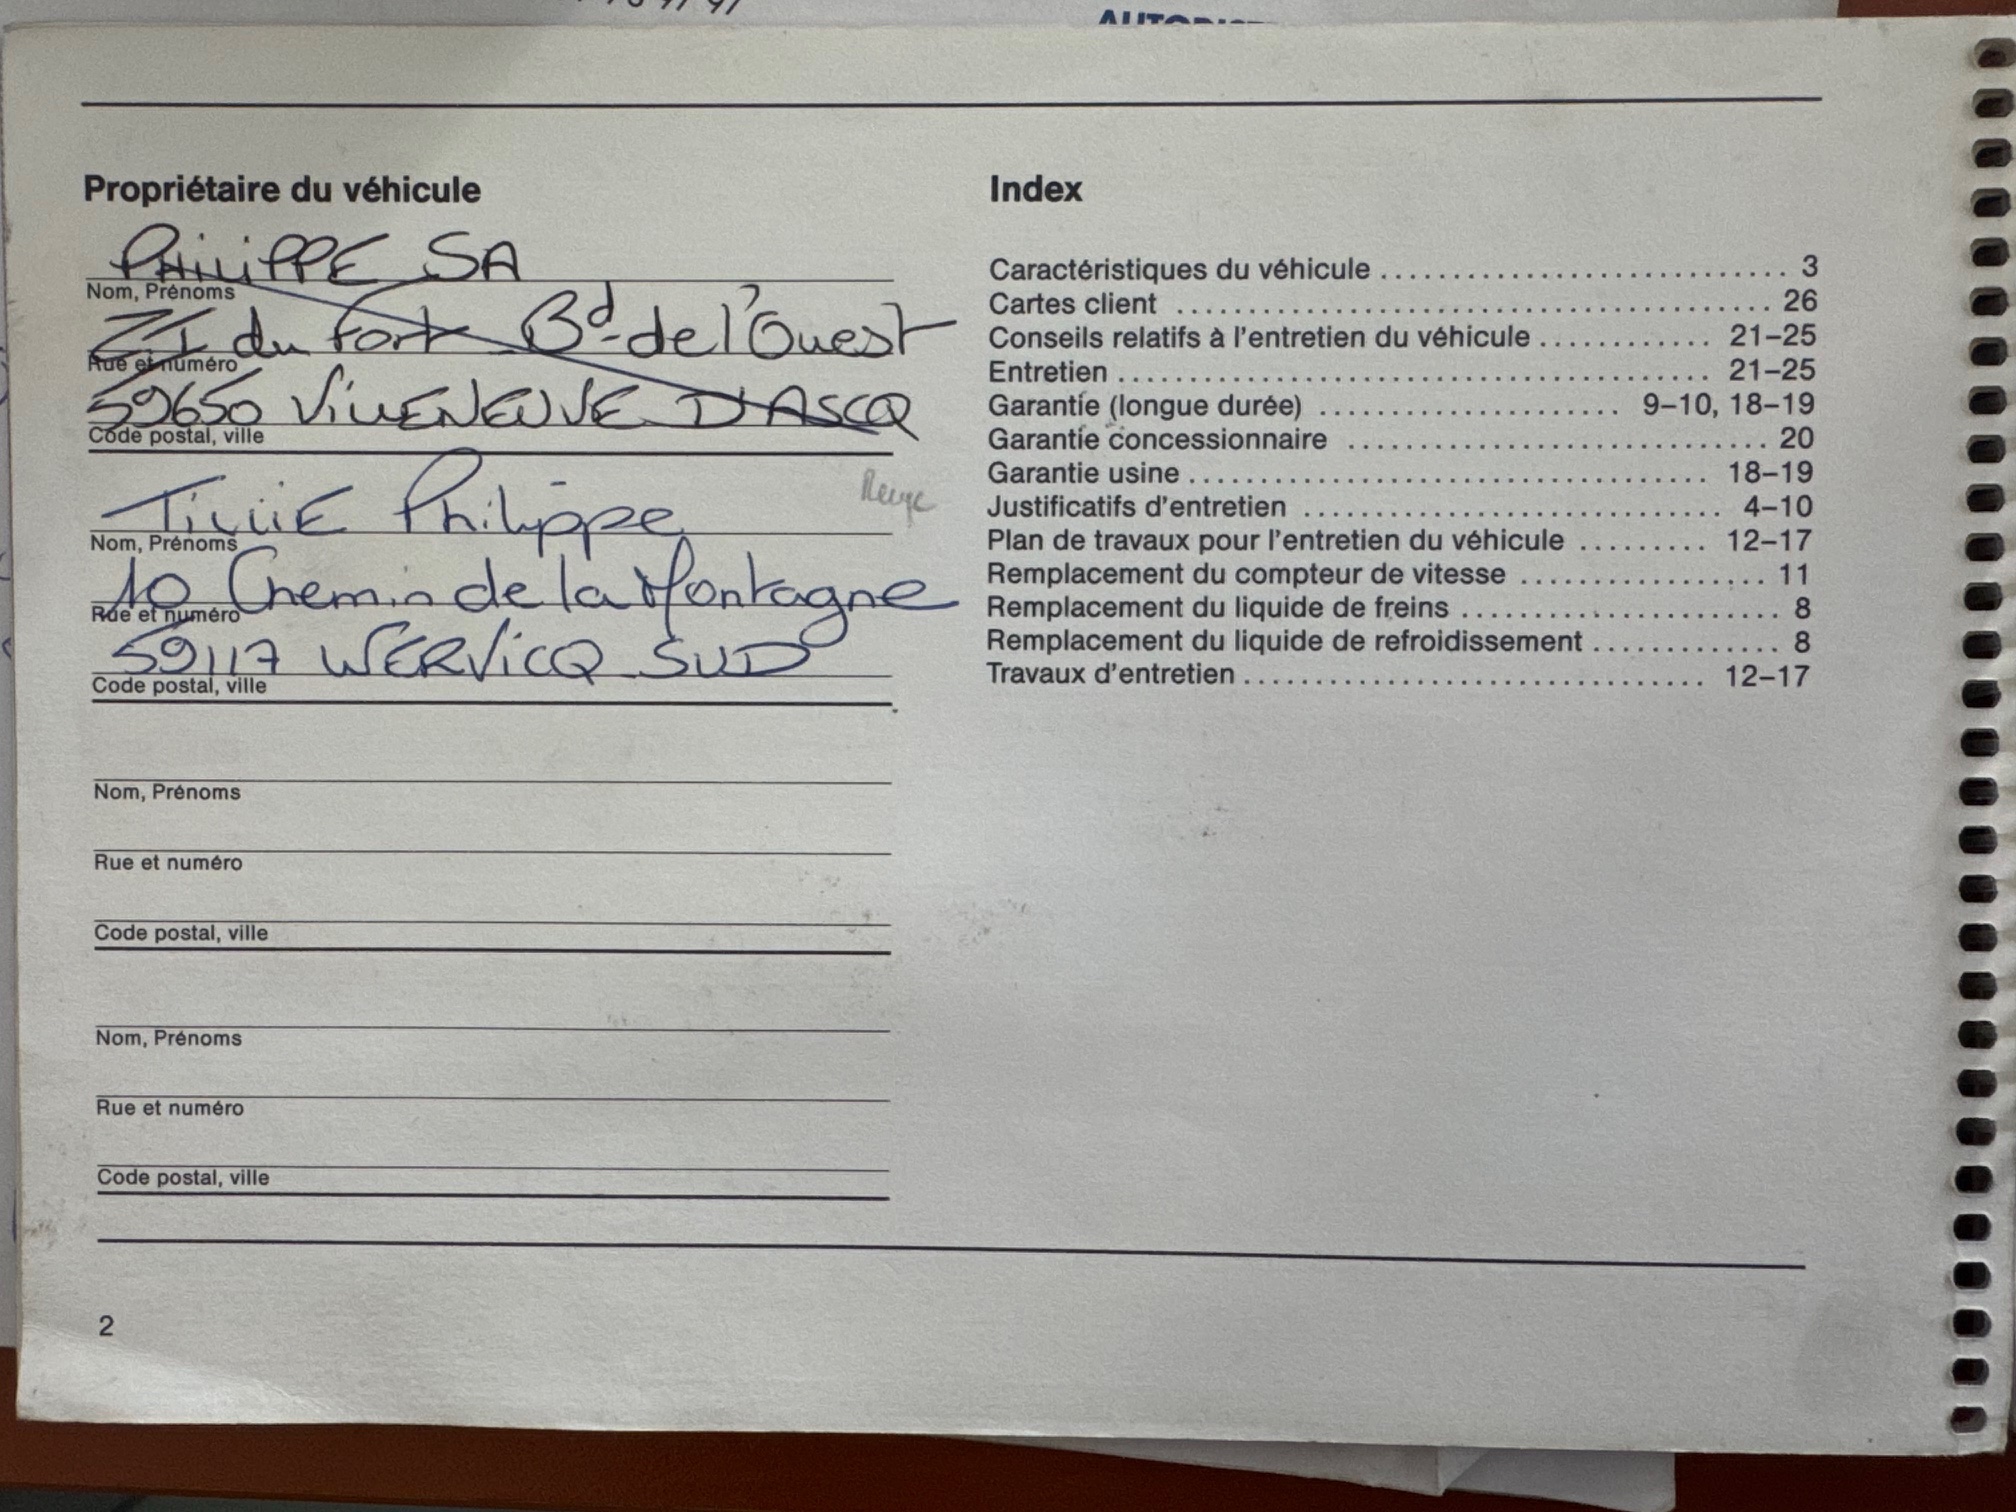 Propriétaire du véhicule
PHILIPPE SA
Nom, Prénoms
ZI du Fort Bd de l'Ouest
Rue et numéro
59650 VILLENEUVE D'ASCQ
Code postal, ville
Philippe
Nom, Prénoms
10 Chemin de la Montagne
Rue et numéro
59117 WERVICQ SUD
Code postal, ville
Nom, Prénoms
Rue et numéro
Code postal, ville
Nom, Prénoms
Rue et numéro
Code postal, ville
2
Index
Caractéristiques du véhicule ............................ 3
Cartes client .......................................... 26
Conseils relatifs à l'entretien du véhicule ............ 21–25
Entretien .......................................... 21–25
Garantie (longue durée) ..................... 9–10, 18–19
Garantie concessionnaire .............................. 20
Garantie usine ..................................... 18–19
Justificatifs d'entretien .............................. 4–10
Plan de travaux pour l'entretien du véhicule ......... 12–17
Remplacement du compteur de vitesse .................. 11
Remplacement du liquide de freins ........................ 8
Remplacement du liquide de refroidissement ............. 8
Travaux d'entretien ................................. 12–17